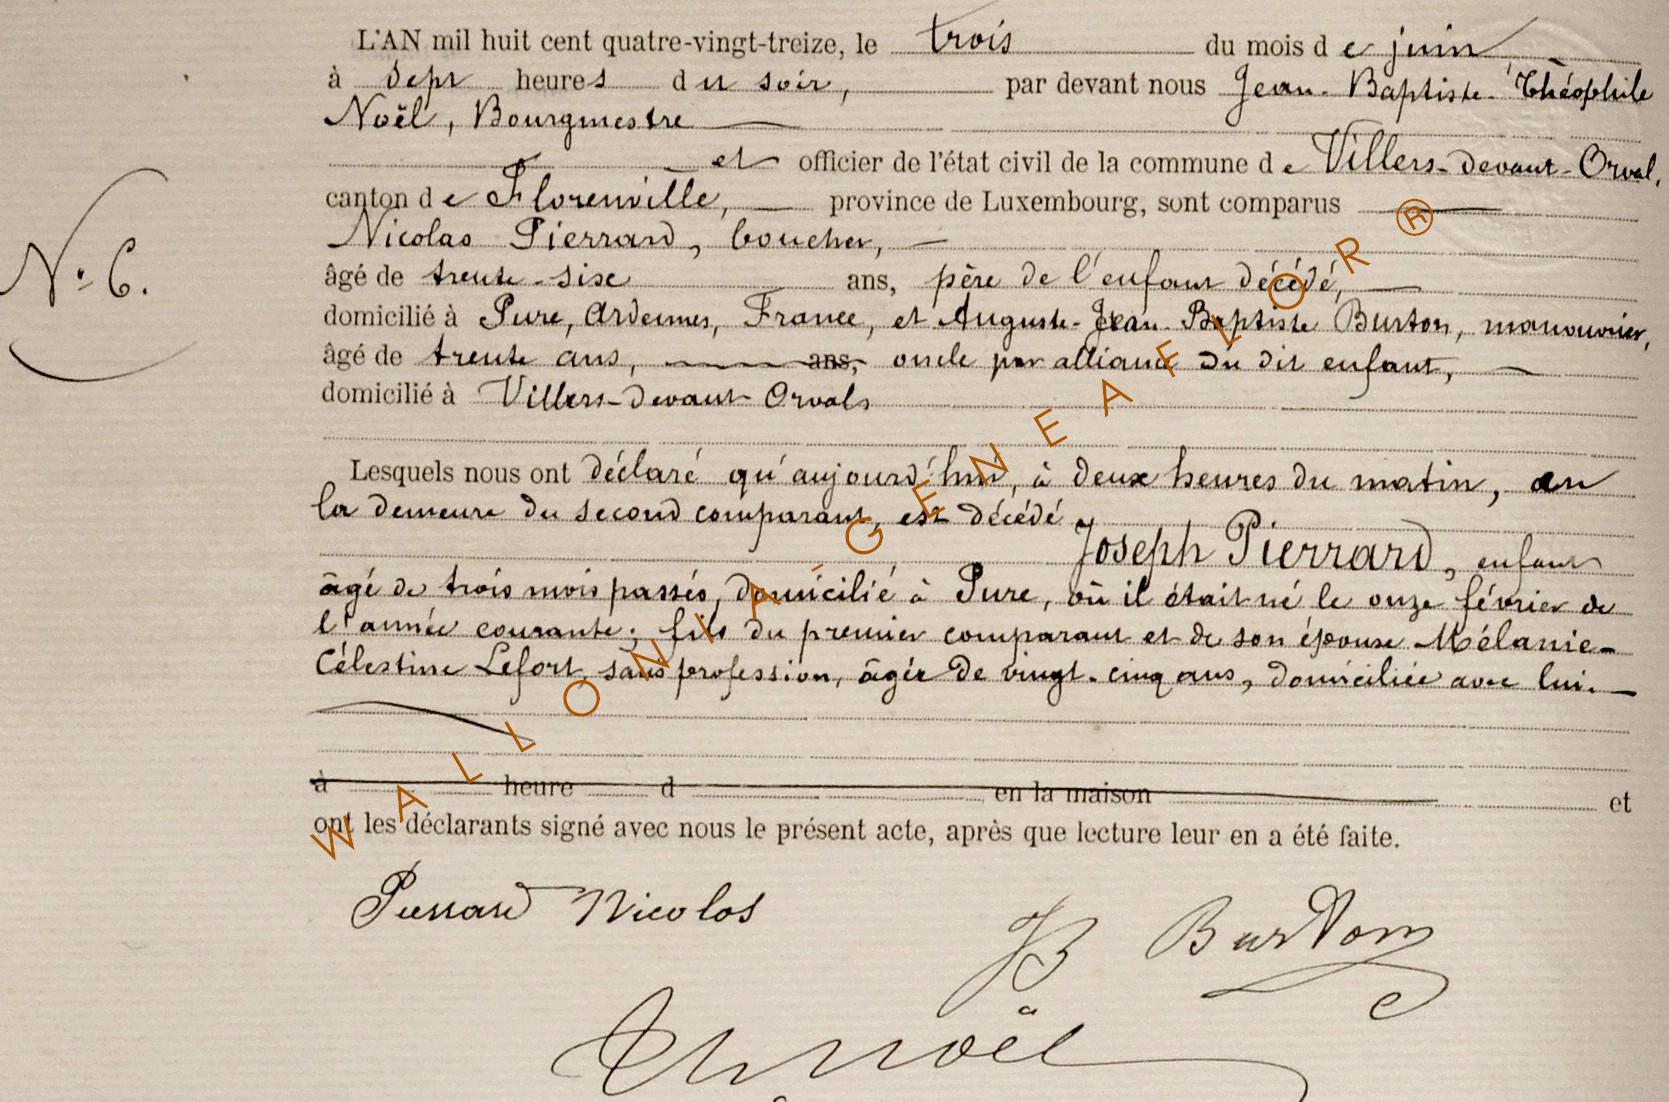 L'AN mil huit cent quatre-vingt-treize, le trois du mois de juin,
à sept heures du soir, par devant nous Jean-Baptiste-Théophile
Noël, Bourgmestre
et officier de l'état civil de la commune de Villers-devant-Orval,
canton de Florenville, province de Luxembourg, sont comparus
Nicolas Pierrard, boucher,
N° 6.
âgé de trente-six ans, père de l'enfant décédé,
domicilié à Pure, Ardennes, France, et Auguste-Jean-Baptiste Burton, manouvrier,
âgé de trente ans, ans, oncle par alliance du dit enfant,
domicilié à Villers-devant-Orval,
Lesquels nous ont déclaré qu'aujourd'hui, à deux heures du matin, en
la demeure du second comparant, est décédé
Joseph Pierrard, enfant
âgé de trois mois passés, domicilié à Pure, où il était né le onze février de
l'année courante; fils du premier comparant et de son épouse Mélanie-
Célestine Lefort, sans profession, âgée de vingt-cinq ans, domiciliée avec lui.
à heure d en la maison et
ont les déclarants signé avec nous le présent acte, après que lecture leur en a été faite.
Pierrard Nicolas
JB Burton
Th Noël
WALLONIA-GENEAFLOR ®